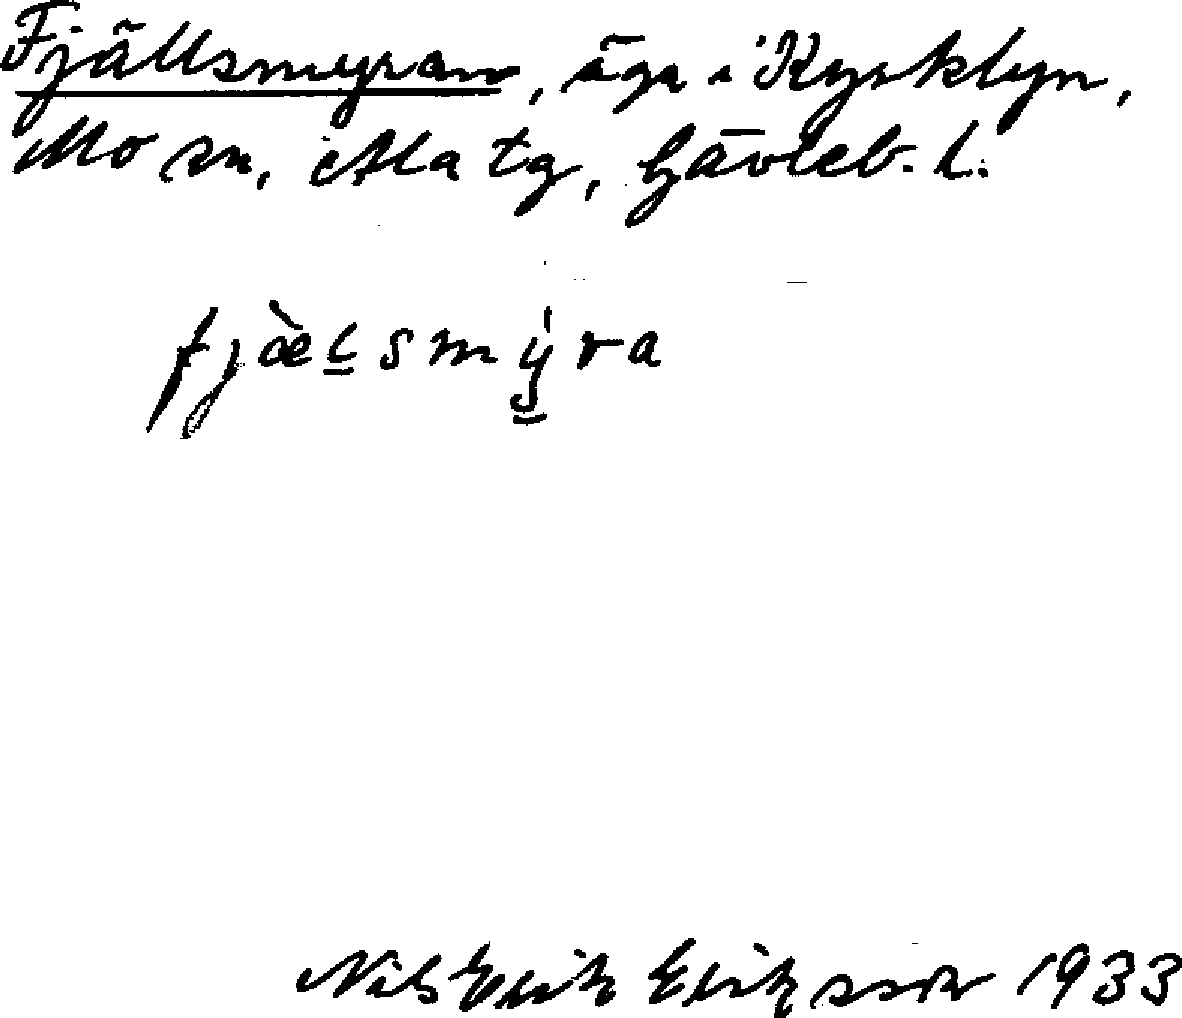 Fjällsmyran, äga i Kysklyn,
Mo sn, Ala tg, Gävleb. l.
fjæ̀lsmýra
Nils Erik Eriksson 1933